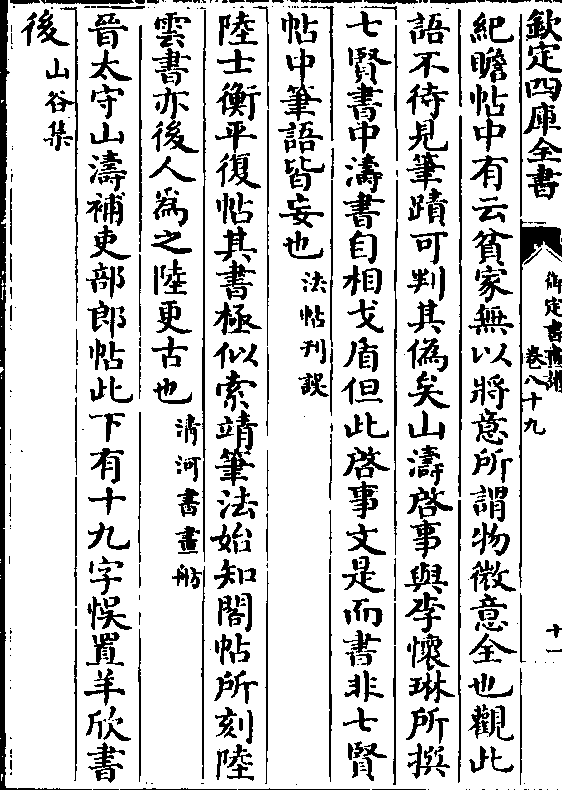 欽定四庫全書
御定書畫譜
卷八十九
十一
紀瞻帖中有云貧家無以將意所謂物微意全也觀此
語不待見筆蹟可判其偽矣山濤啓事與李懷琳所撰
七賢書中濤書自相戈盾但此啓事文是而書非七賢
帖中筆語皆妄也法帖刊誤
陸士衡平復帖其書極似索靖筆法始知閣帖所刻陸
雲書亦後人為之陸更古也清河書畫舫
晉太守山濤補吏部郎帖此下有十九字悞置羊欣書
後山谷集